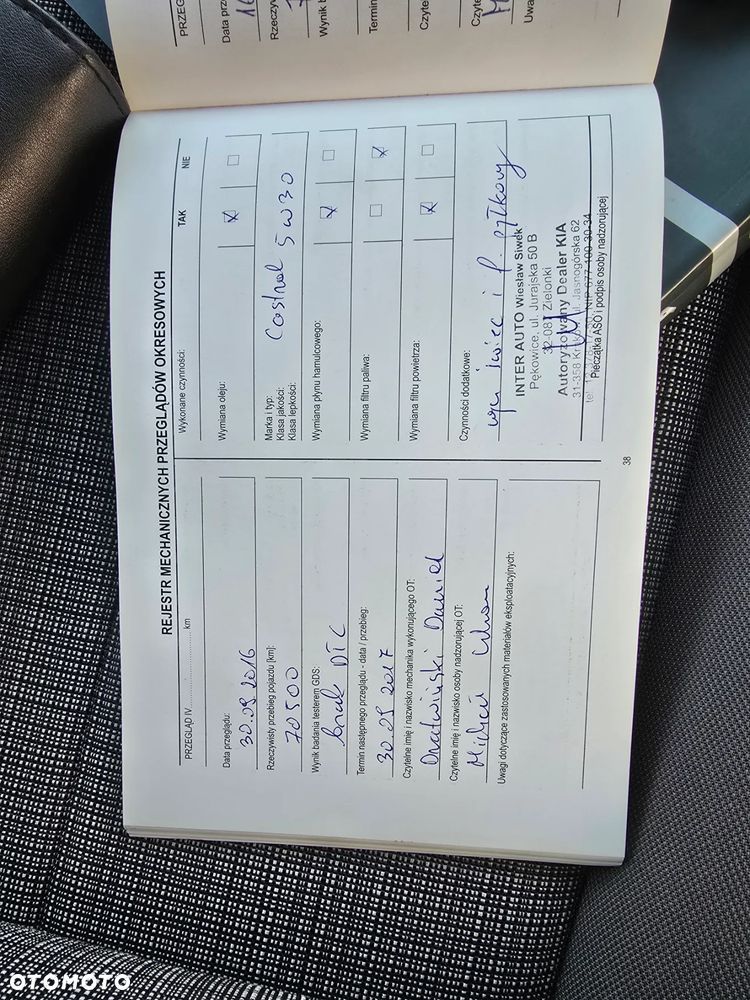 REJESTR MECHANICZNYCH PRZEGLĄDÓW OKRESOWYCH
PRZEGLĄD IV ................ km
Data przeglądu:
30.09.2016
Rzeczywisty przebieg pojazdu [km]:
70500
Wynik badania testerem GDS:
brak DTC
Termin następnego przeglądu - data / przebieg:
30.09.2017
Czytelne imię i nazwisko mechanika wykonującego OT:
Daniel
Czytelne imię i nazwisko osoby nadzorującej OT:
Michał
Uwagi dotyczące zastosowanych materiałów eksploatacyjnych:
Wykonane czynności:
TAK
NIE
Wymiana oleju:
Marka i typ:
Klasa jakości:
Klasa lepkości:
Castrol 5w30
Wymiana płynu hamulcowego:
Wymiana filtru paliwa:
Wymiana filtru powietrza:
Czynności dodatkowe:
i f. pyłkowy
INTER AUTO Wiesław Siwek
Pękowice, ul. Jurajska 50 B
32-087 Zielonki
Autoryzowany Dealer KIA
31-358 Jasnogórska 62
Pieczątka ASO i podpis osoby nadzorującej
38
PRZEG
Data prz
Rzeczyw
Wynik b
Termin
Czyte
Czyte
Uwa
OTOMOTO